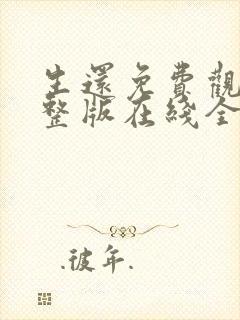 生還免費觀
整版在綫全
.彼年.